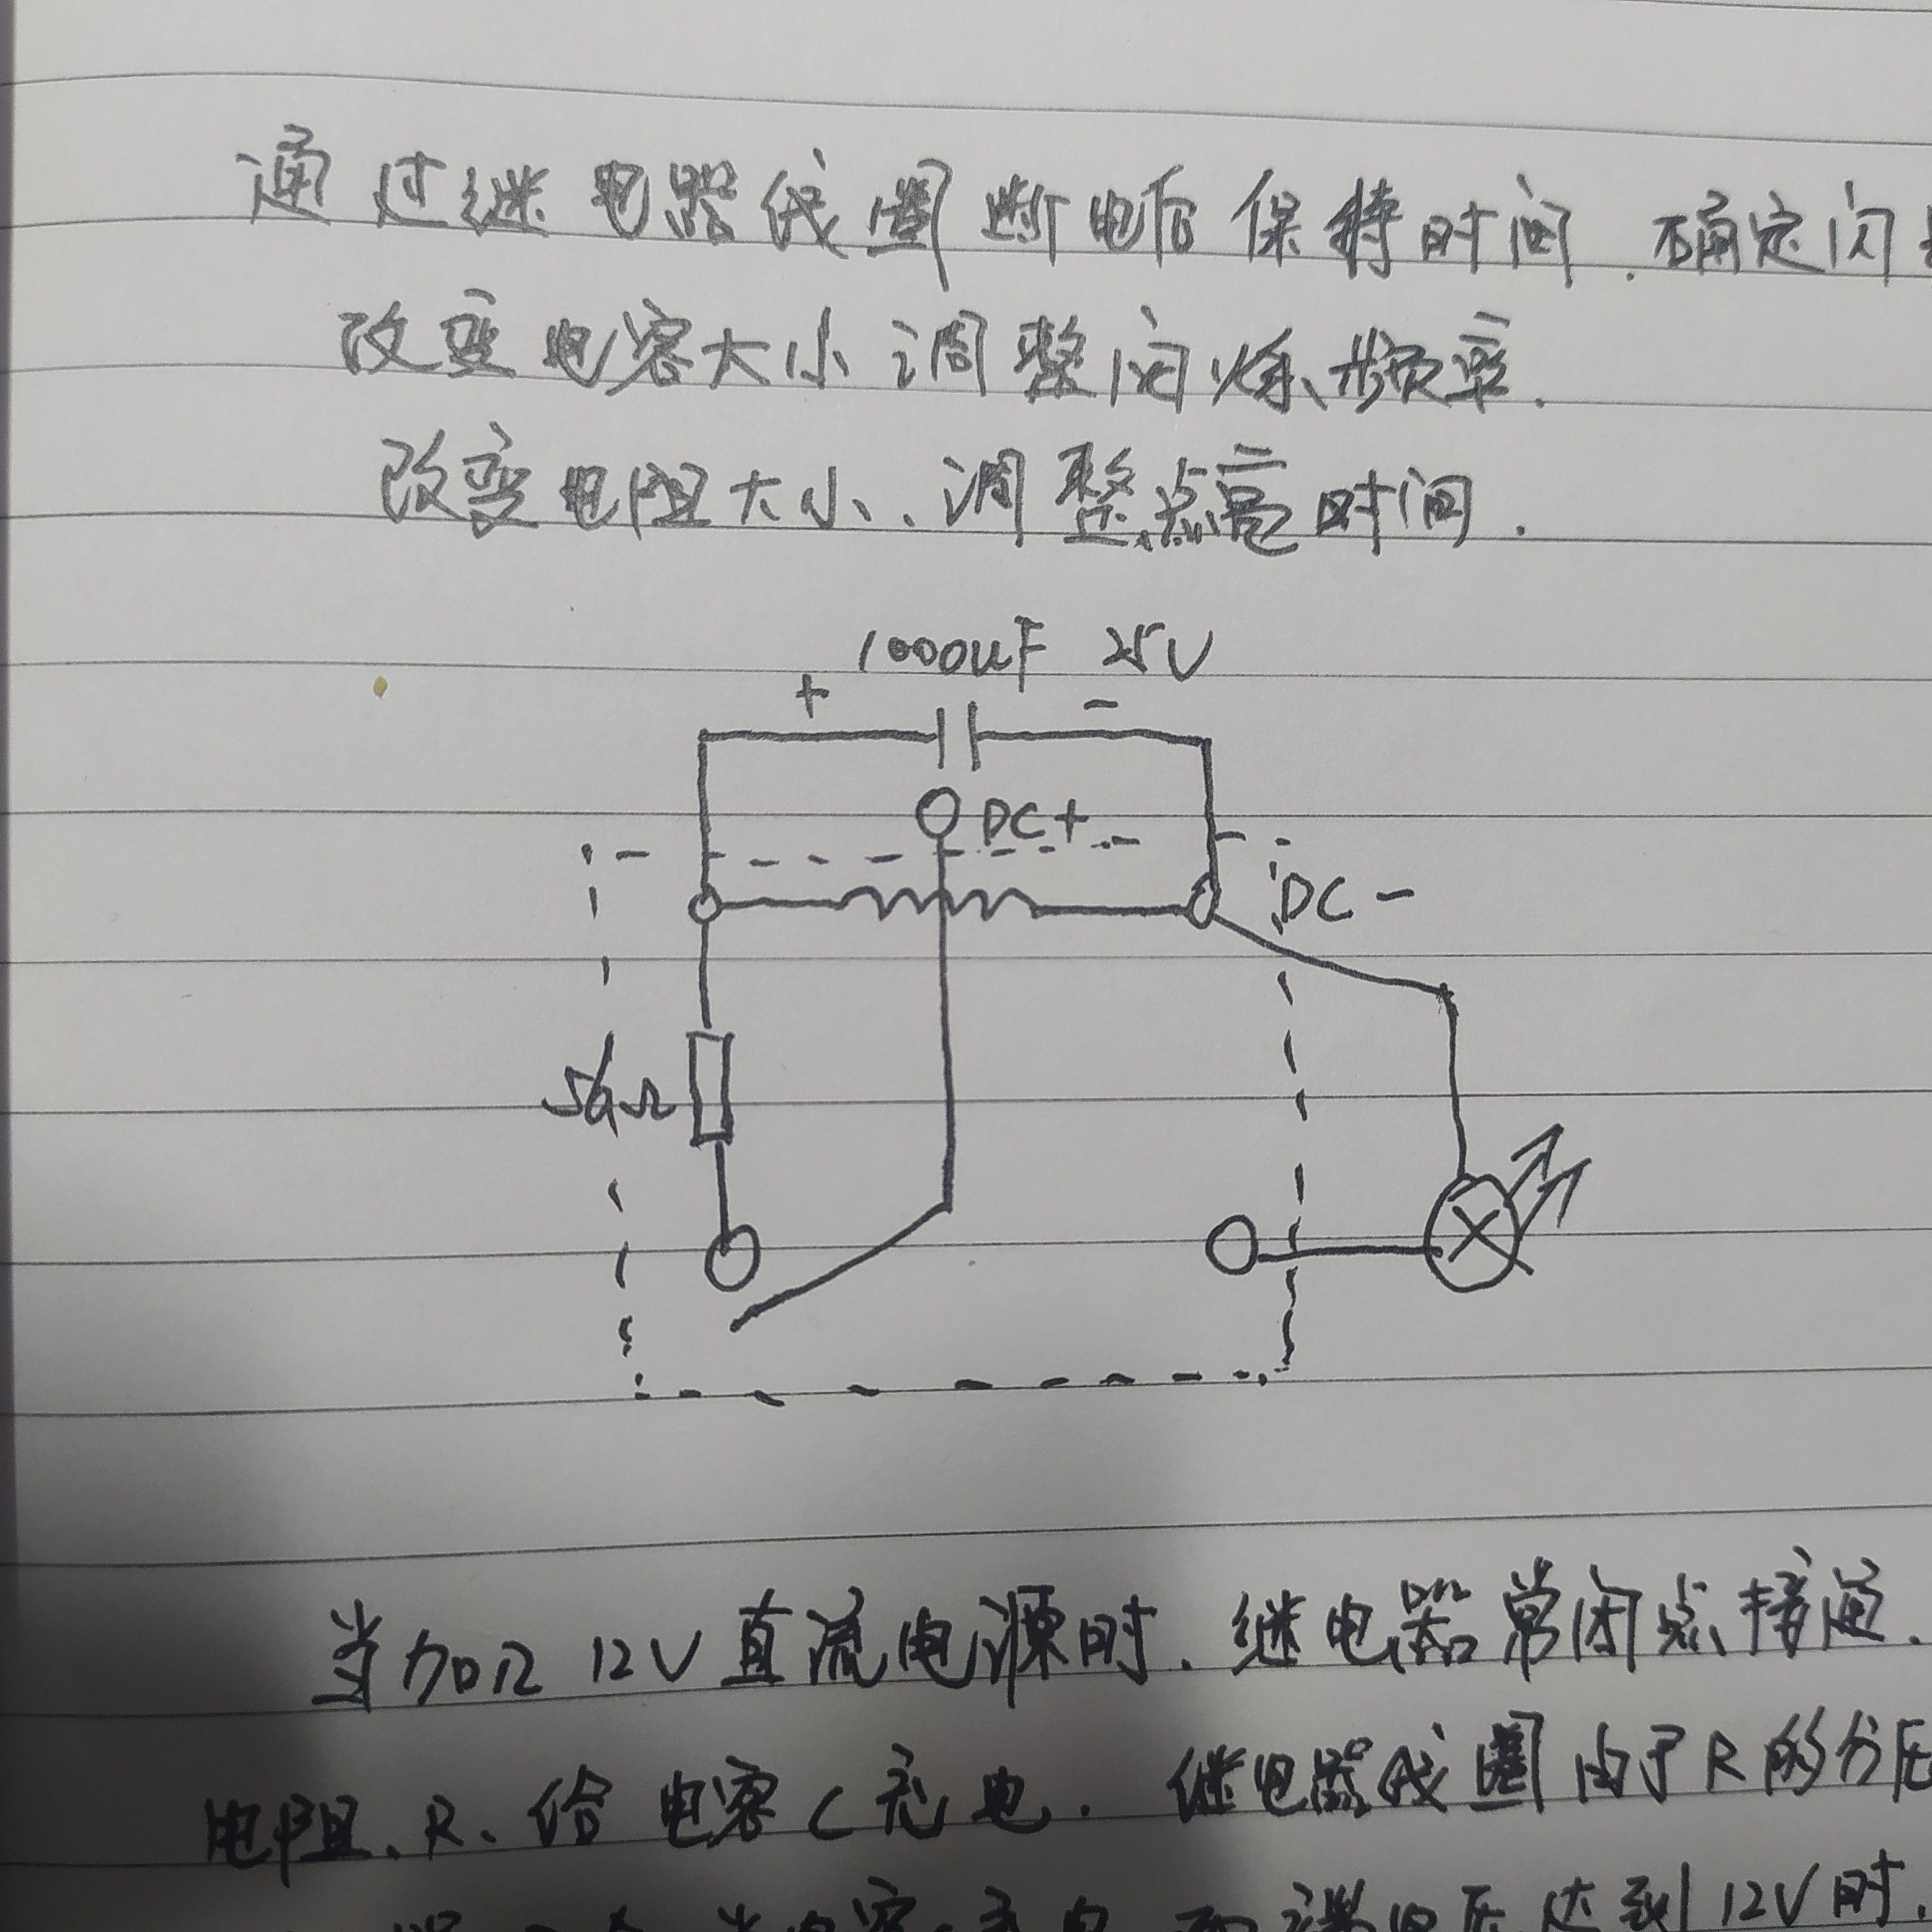 通过继电器线圈断电后保持时间.确定闪
改变电容大小调整闪烁频率.
改变电阻大小.调整点亮时间.
1000uF 25V
+ -
DC+
DC-
56Ω
当加以12V直流电源时.继电器常闭点接通.
电阻.R.给电容C充电.继电器线圈由于R的分压
当电容充电 两端电压达到12V时.